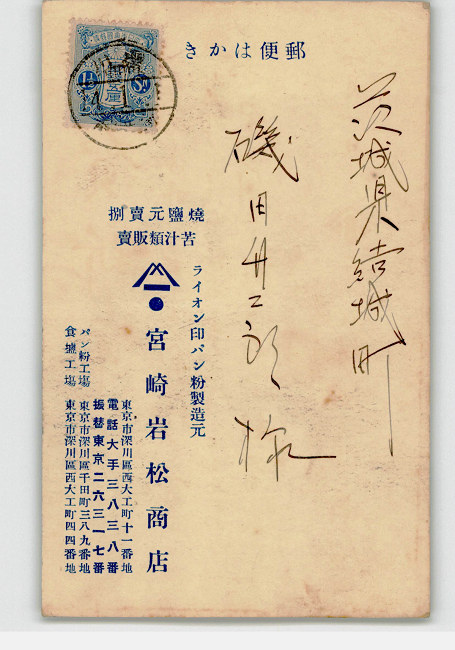 郵便はかき
茨城県結城町
磯田
様
焼鹽元賣捌
苦汁類販賣
ライオン印パン粉製造元
宮崎岩松商店
東京市深川區西大工町十一番地
電話大手三八三八番
振替東京二六三一七番
パン粉工場 東京市深川區千田町三八九番地
食鹽工場 東京市深川區西大工町四四番地
1½ Sn